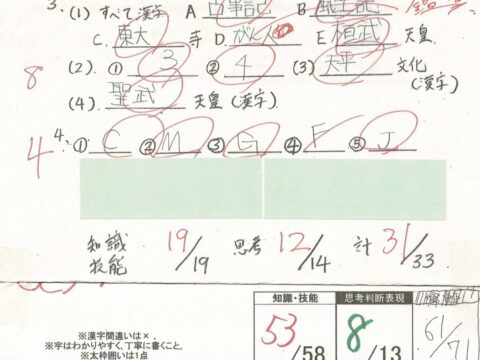 3. (1) すべて漢字 A 古事記 B 風土記
C. 東大 寺 D. がく人 E 桓武 天皇
8 (2). ① 3 ② 4 (3) 天平 文化 (漢字)
(4) 聖武 天皇 (漢字)
4 4. ① C ② M ③ G ④ F ⑤ J
知識 技能 19/19 思考 12/14 計 31/33
知識・技能 思考判断表現
53/58 8/13 61/71
※漢字間違いは×。
※字はわかりやすく、丁寧に書くこと。
※太枠囲いは1点